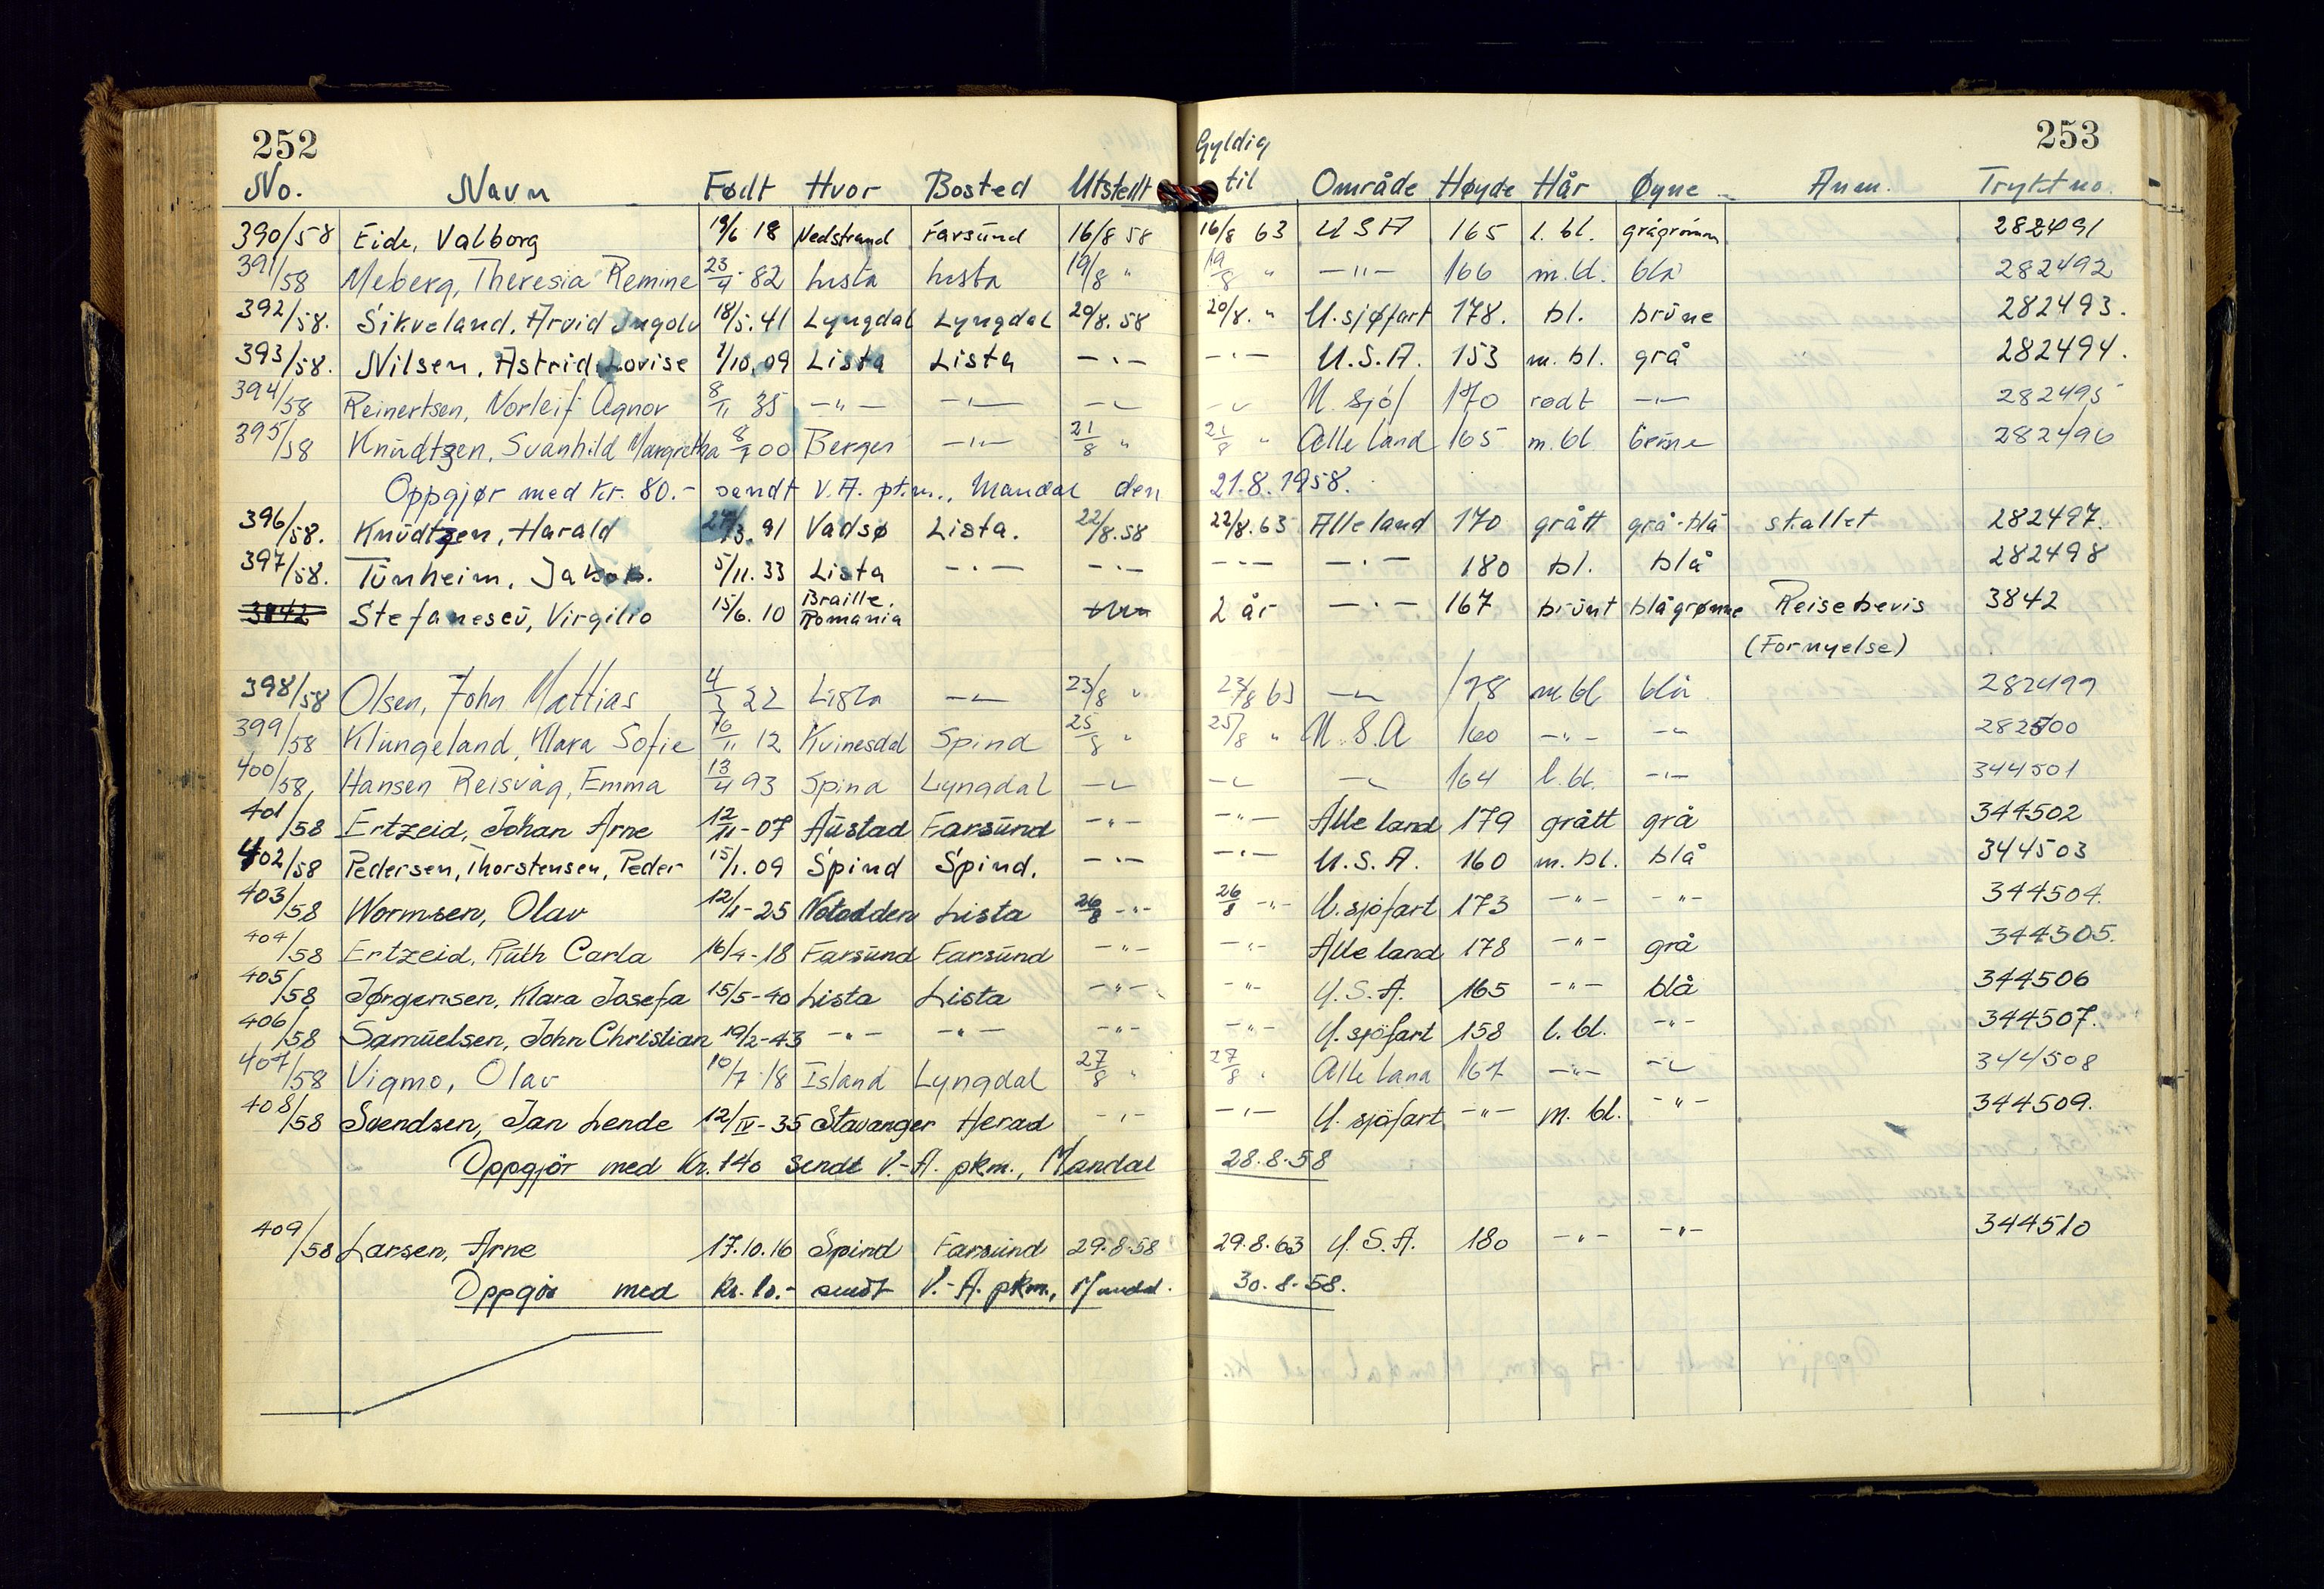 252
253
No. Navn Født Hvor Bosted Utstedt Gyldig til Område Høyde Hår Øyne Anm. Trykt no.
390/58 Eide, Valborg 19/6 18 Nedstrand Farsund 16/8 58 16/8 63 USA 165 l. bl. grågrønn 282491
391/58 Meberg, Theresia Remine 23/4 82 Lista Lista 19/8 " 19/8 " -"- 166 m. bl. blå 282492
392/58. Sikveland, Arvid Ingolv 18/5. 41 Lyngdal Lyngdal 20/8. 58 20/8. " U. sjøfart 178. bl. brune 282493.
393/58. Nilsen, Astrid Lovise 1/10. 09 Lista Lista -"- -"- U.S.A. 153 m. bl. grå 282494.
394/58 Reinertsen, Norleif Agnor 8/11 35 -"- -"- -"- -"- U. sjøf 170 rødt -"- 282495
395/58 Knudtzen, Svanhild Margretha 8/7 00 Bergen -"- 21/8 " 21/8 " Alle land 165 m. bl brune 282496
Oppgjør med kr. 80.- sendt V.A. pt.m., Mandal den 21.8.1958.
396/58. Knudtzen, Harald 27/3. 91 Vadsø Lista. 22/8.58 22/8.63 Alle land 170 grått grå-blå stallet 282497.
397/58. Tunheim, Jakob. 5/11. 33 Lista -"- -"- -"- -"- 180 bl. blå 282498
3842 Stefanescu, Virgilio 15/6. 10 Braille. Romania 2 år -"- 167 brunt blågrønne Reisebevis 3842
(Fornyelse)
398/58 Olsen, John Mattias 4/3 22 Lista -"- 23/8 " 23/8 63 -"- 178 m. bl blå 282499
399/58 Klungeland, Klara Sofie 16/11 12 Kvinesdal Spind 25/8 " 25/8 " U.S.A 160 -"- -"- 282500
400/58 Hansen Reisvåg, Emma 13/4 93 Spind Lyngdal -"- -"- -"- 164 l. bl. -"- 344501
401/58 Ertzeid, Johan Arne 12/11-07 Austad Farsund -"- -"- Alle land 179 grått grå 344502
402/58 Pedersen, Thorstensen, Peder 15/1. 09 Spind Spind. -"- -"- U.S.A. 160 m. bl. blå 344503
403/58 Wormsen, Olav 12/1-25 Notodden Lista 26/8 -"- 26/8 -"- U. sjøfart 173 -"- -"- 344504.
404/58 Ertzeid, Ruth Carla 16/4-18 Farsund Farsund -"- -"- Alle land 178 -"- grå 344505.
405/58 Jørgensen, Klara Josefa 15/5-40 Lista Lista -"- -"- U.S.A. 165 -"- blå 344506
406/58 Samuelsen, John Christian 19/2-43 -"- -"- -"- -"- U. sjøfart 158 l. bl. -"- 344507.
407/58 Vigmo, Olav 10/7 18 Island Lyngdal 27/8 " 27/8 " Alle land 167 -"- -"- 344508
408/58 Svendsen, Jan Lende 12/IV-35 Stavanger Herad -"- -"- U. sjøfart -"- m. bl. -"- 344509.
Oppgjør med Kr. 140 sendt V.-A. pkm., Mandal 28.8.58
409/58 Larsen, Arne 17.10.16 Spind Farsund 29.8.58 29.8.63 U.S.A. 180 -"- -"- 344510
Oppgjør med Kr. 10.- sendt V.-A. pkm., Mandal. 30.8.58.